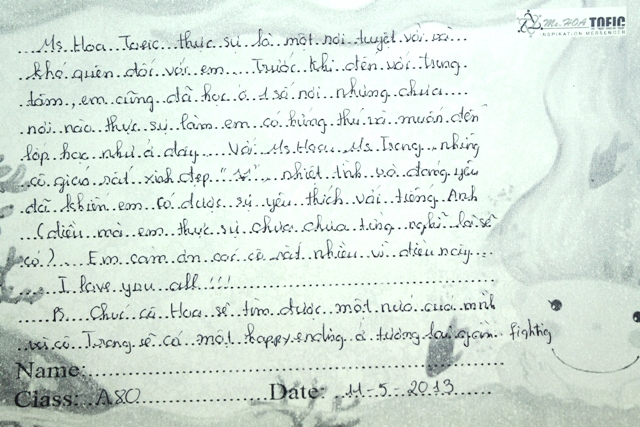 Ms. HOA TOEIC
INSPIRATION MESSENGER
...Ms. Hoa Toeic thực sự là một nơi tuyệt vời và
khó quên đối với em.... Trước khi đến với trung
tâm, em cũng đã học ở 1 số nơi nhưng chưa....
nơi nào thực sự làm em có hứng thú và muốn đến
lớp học như ở đây.... Với Ms. Hoa, Ms. Trang, những
cô giáo rất xinh đẹp nhiệt tình và đáng yêu
đã khiến em có được sự yêu thích với tiếng Anh
(điều mà em thực sự chưa chưa từng nghĩ là sẽ
có). Em cảm ơn các cô rất nhiều vì điều này...
I love you all!!!
Chúc cô Hoa sẽ tìm được một nửa của mình
và cô Trang sẽ có một happy ending ở tương lai gần. fightig
Name:
Class: A80 Date: 11-5-2013